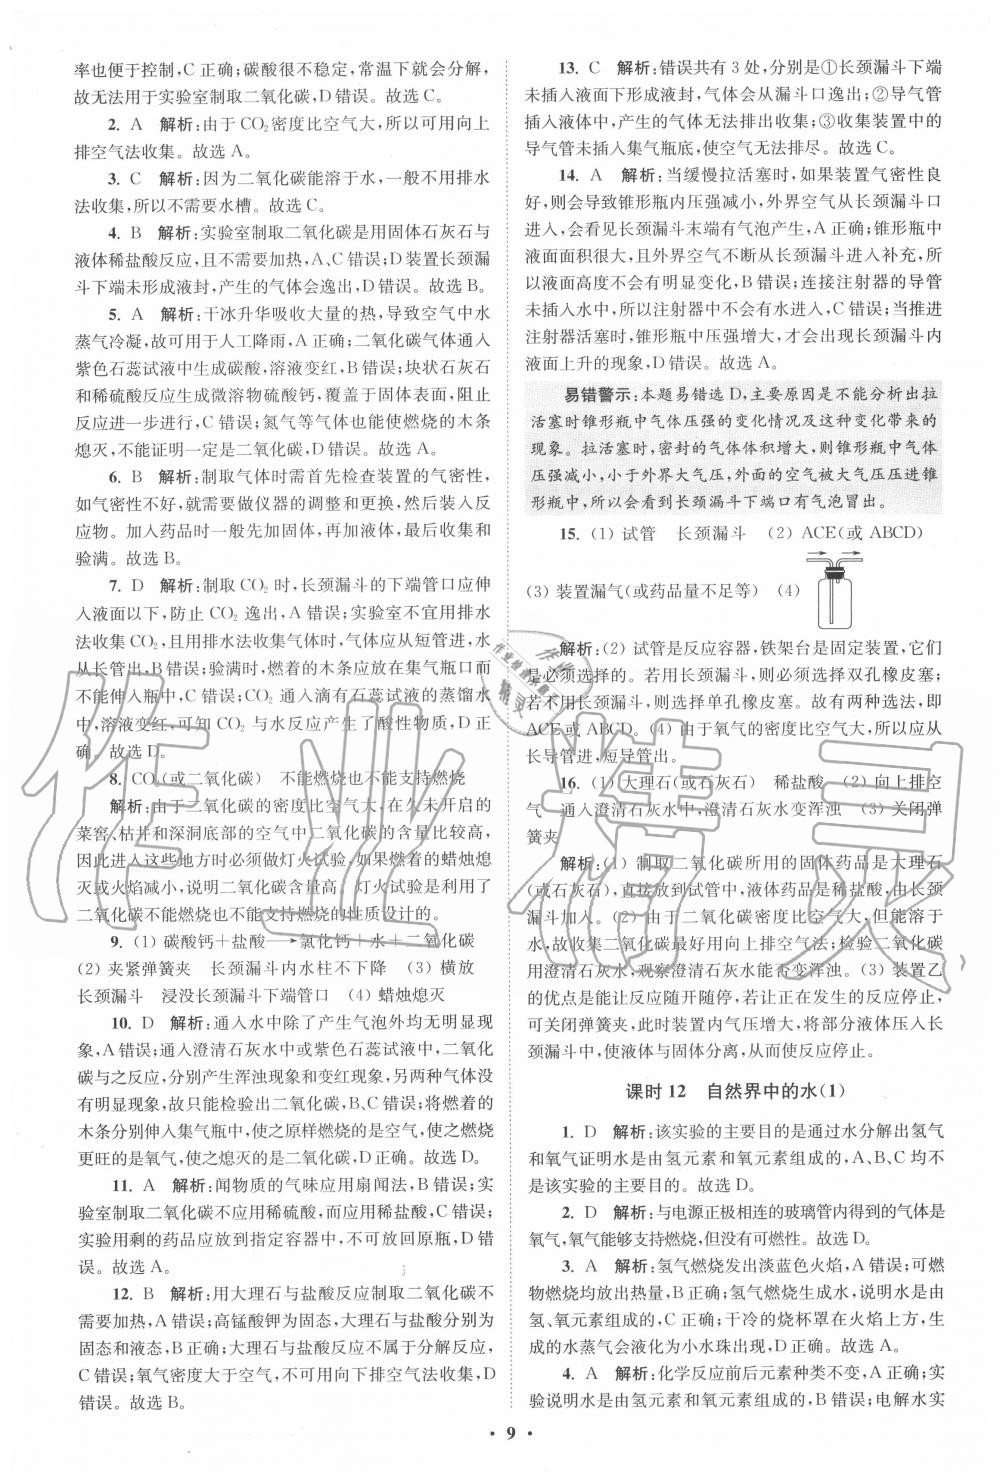 率也便于控制,C正确;碳酸很不稳定,常温下就会分解,
故无法用于实验室制取二氧化碳,D错误。故选C。
2. A 解析:由于CO₂密度比空气大,所以可用向上
排空气法收集。故选A。
3. C 解析:因为二氧化碳能溶于水,一般不用排水
法收集,所以不需要水槽。故选C。
4. B 解析:实验室制取二氧化碳是用固体石灰石与
液体稀盐酸反应,不需要加热,A、C错误;D装置长颈漏
斗下端未形成液封,产生的气体会逸出,D错误。故选B。
5. A 解析:干冰升华吸收大量的热,导致空气中水
蒸气冷凝,故可用于人工降雨,A正确;二氧化碳气体通入
紫色石蕊试液中生成碳酸,溶液变红,B错误;块状石灰石
和稀硫酸反应生成微溶物硫酸钙,覆盖于固体表面,阻止
反应进一步进行,C错误;氮气等气体也能使燃烧的木条
熄灭,不能证明一定是二氧化碳,D错误。故选A。
6. B 解析:制取气体时需首先检查装置的气密性,
如气密性不好,就需要做仪器的调整和更换,然后装入反
应物。加入药品时一般先加固体,再加液体,最后收集和
验满。故选B。
7. D 解析:制取CO₂时,长颈漏斗的下端管口应伸
入液面以下,防止CO₂逸出,A错误;实验室不宜用排水
法收集CO₂,且用排水法收集气体时,气体应从短管进,水
从长管出,B错误;验满时,燃着的木条应放在集气瓶口而
不能伸入瓶中,C错误;CO₂通入滴有石蕊试液的蒸馏水
中,溶液变红,可知CO₂与水反应产生了酸性物质,D正
确。故选D。
8. CO₂(或二氧化碳) 不能燃烧也不能支持燃烧
解析:由于二氧化碳的密度比空气大,在久未开启的
菜窖、枯井和深洞底部的空气中二氧化碳的含量比较高,
因此进入这些地方时必须做灯火试验,如果燃着的蜡烛熄
灭或火焰减小,说明二氧化碳含量高。灯火试验是利用了
二氧化碳不能燃烧也不能支持燃烧的性质设计的。
9. (1) 碳酸钙+盐酸→氯化钙+水+二氧化碳
(2) 夹紧弹簧夹 长颈漏斗内水柱不下降 (3) 横放
长颈漏斗 浸没长颈漏斗下端管口 (4) 蜡烛熄灭
10. D 解析:通入水中除了产生气泡外均无明显现
象,A错误;通入澄清石灰水中或紫色石蕊试液中,二氧化
碳与之反应,分别产生浑浊现象和变红现象,另两种气体
无明显现象,故只能检验出二氧化碳,B、C错误;将燃着的
木条分别伸入集气瓶中,使之原样燃烧的是空气,使之燃烧
更旺的是氧气,使之熄灭的是二氧化碳,D正确。故选D。
11. A 解析:闻物质的气味应用扇闻法,B错误;实
验室制取二氧化碳不应用稀硫酸,而应用稀盐酸,C错误;
实验用剩的药品应放到指定容器中,不可放回原瓶,D错
误。故选A。
12. B 解析:用大理石与盐酸反应制取二氧化碳不
需要加热,A错误;高锰酸钾为固态,大理石与盐酸分别为
固态和液态,B正确;大理石与盐酸反应不属于分解反应,
C错误;氧气密度比空气大,不可用向下排空气法收集,D
错误。故选B。
13. C 解析:错误共有3处,分别是①长颈漏斗下端
未插入液面下形成液封,气体会从漏斗口逸出;②导气管
插入液体中,产生的气体无法排出收集;③收集装置中的
导气管未插入集气瓶底,使空气无法排尽。故选C。
14. A 解析:当缓慢拉活塞时,如果装置气密性良
好,则会导致锥形瓶内压强减小,外界空气从长颈漏斗口
进入,会看见长颈漏斗末端有气泡产生,A正确;锥形瓶中
液面面积很大,且外界空气不断从长颈漏斗进入补充,所
以液面高度不会有明显变化,B错误;连接注射器的导管
未插入水中,所以注射器中不会有水进入,C错误;当推进
注射器活塞时,锥形瓶中压强增大,才会出现长颈漏斗内
液面上升的现象,D错误。故选A。
易错警示:本题易错选D,主要原因是不能分析出拉
活塞时锥形瓶中气体压强的变化情况及这种变化带来的
现象。拉活塞时,密封的气体体积增大,则锥形瓶中气体
压强减小,小于外界大气压,外面的空气被大气压压进锥
形瓶中,所以会看到长颈漏斗下端口有气泡冒出。
15. (1) 试管 长颈漏斗 (2) ACE(或ABCD)
(3) 装置漏气(或药品量不足等) (4)
解析:(2) 试管是反应容器,铁架台是固定装置,它们
是必须选择的。若用长颈漏斗,则必须选择双孔橡皮塞;
若不用长颈漏斗,则选择单孔橡皮塞。故有两种选法,即
ACE或ABCD。(4) 由于氧气的密度比空气大,所以应从
长导管进,短导管出。
16. (1) 大理石(或石灰石) 稀盐酸 (2) 向上排空
气 通入澄清石灰水中,澄清石灰水变浑浊 (3) 关闭弹
簧夹
解析:(1) 制取二氧化碳所用的固体药品是大理石
(或石灰石),直接放到试管中,液体药品是稀盐酸,由长颈
漏斗加入。(2) 由于二氧化碳密度比空气大,但能溶于
水,故收集二氧化碳最好用向上排空气法;检验二氧化碳
用澄清石灰水,观察澄清石灰水能否变浑浊。(3) 装置乙
的优点是能让反应随开随停,若让正在发生的反应停止,
可关闭弹簧夹,此时装置内气压增大,将部分液体压入长
颈漏斗中,使液体与固体分离,从而使反应停止。
课时12 自然界中的水(1)
1. D 解析:该实验的主要目的是通过水分解出氢气
和氧气证明水是由氢元素和氧元素组成的,A、B、C均不
是该实验的主要目的。故选D。
2. D 解析:与电源正极相连的玻璃管内得到的气体是
氧气,氧气能够支持燃烧,但没有可燃性。故选D。
3. A 解析:氢气燃烧发出淡蓝色火焰,A错误;可燃
物燃烧均放出热量,B正确;氢气燃烧生成水,说明水是由
氢、氧元素组成的,C正确;干冷的烧杯罩在火焰上方,生
成的水蒸气会液化为小水珠出现,D正确。故选A。
4. A 解析:化学反应前后元素种类不变,A正确;实
验说明水是由氢元素和氧元素组成的,B错误;电解水实
• 9 •
作业精灵